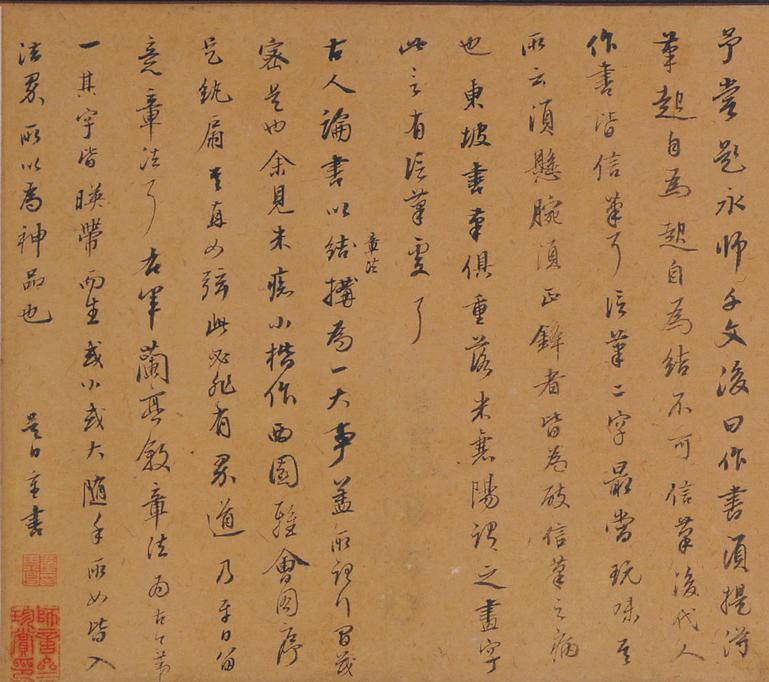 予嘗題永師千文後曰作書須提得
筆起自為起自為結不可信筆後代人
作書皆信筆耳信筆二字最當玩味吾
所云須懸腕須正鋒者皆為破信筆之病
也東坡書筆俱重落米襄陽謂之畫字
此言有信筆處耳
古人論書以結構為一大事蓋所謂行間茂
章法
密是也余見米癡小楷作西園雅會圖序
是紈扇其直如弦此必非有界道乃平日留
意章法耳右軍蘭亭敘章法為古今第
一其字皆映帶而生或小或大隨手所如皆入
法界所以為神品也
書